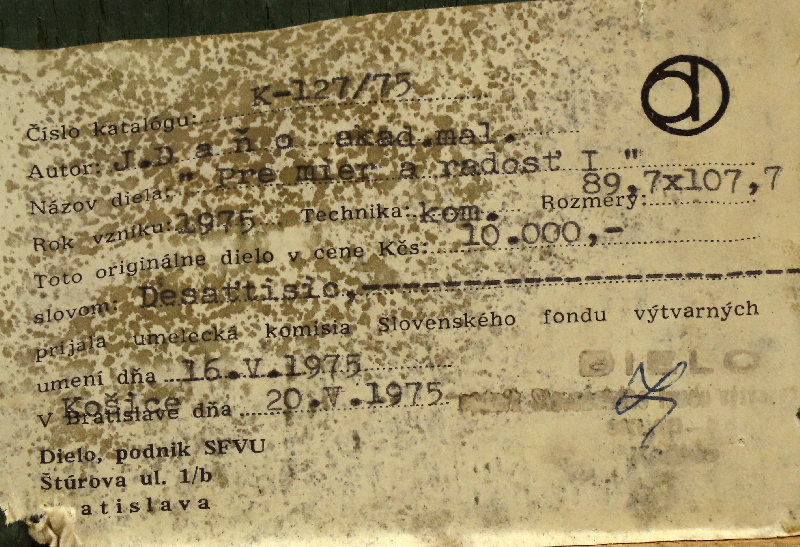 Číslo katalógu: K-127/75
Autor: J.Daňo akad.mal.
Názov diela: „Pre mier a radosť I "
Rok vzniku: 1975 Technika: kom. Rozmery: 89,7x107,7
Toto originálne dielo v cene Kčs: 10.000,-
slovom: Desaťtisíc,
prijala umelecká komisia Slovenského fondu výtvarných
umení dňa 16.V.1975
V Bratislave Košice dňa 20.V.1975
DIELO
Dielo, podnik SFVU
Štúrova ul. 1/b
atislava